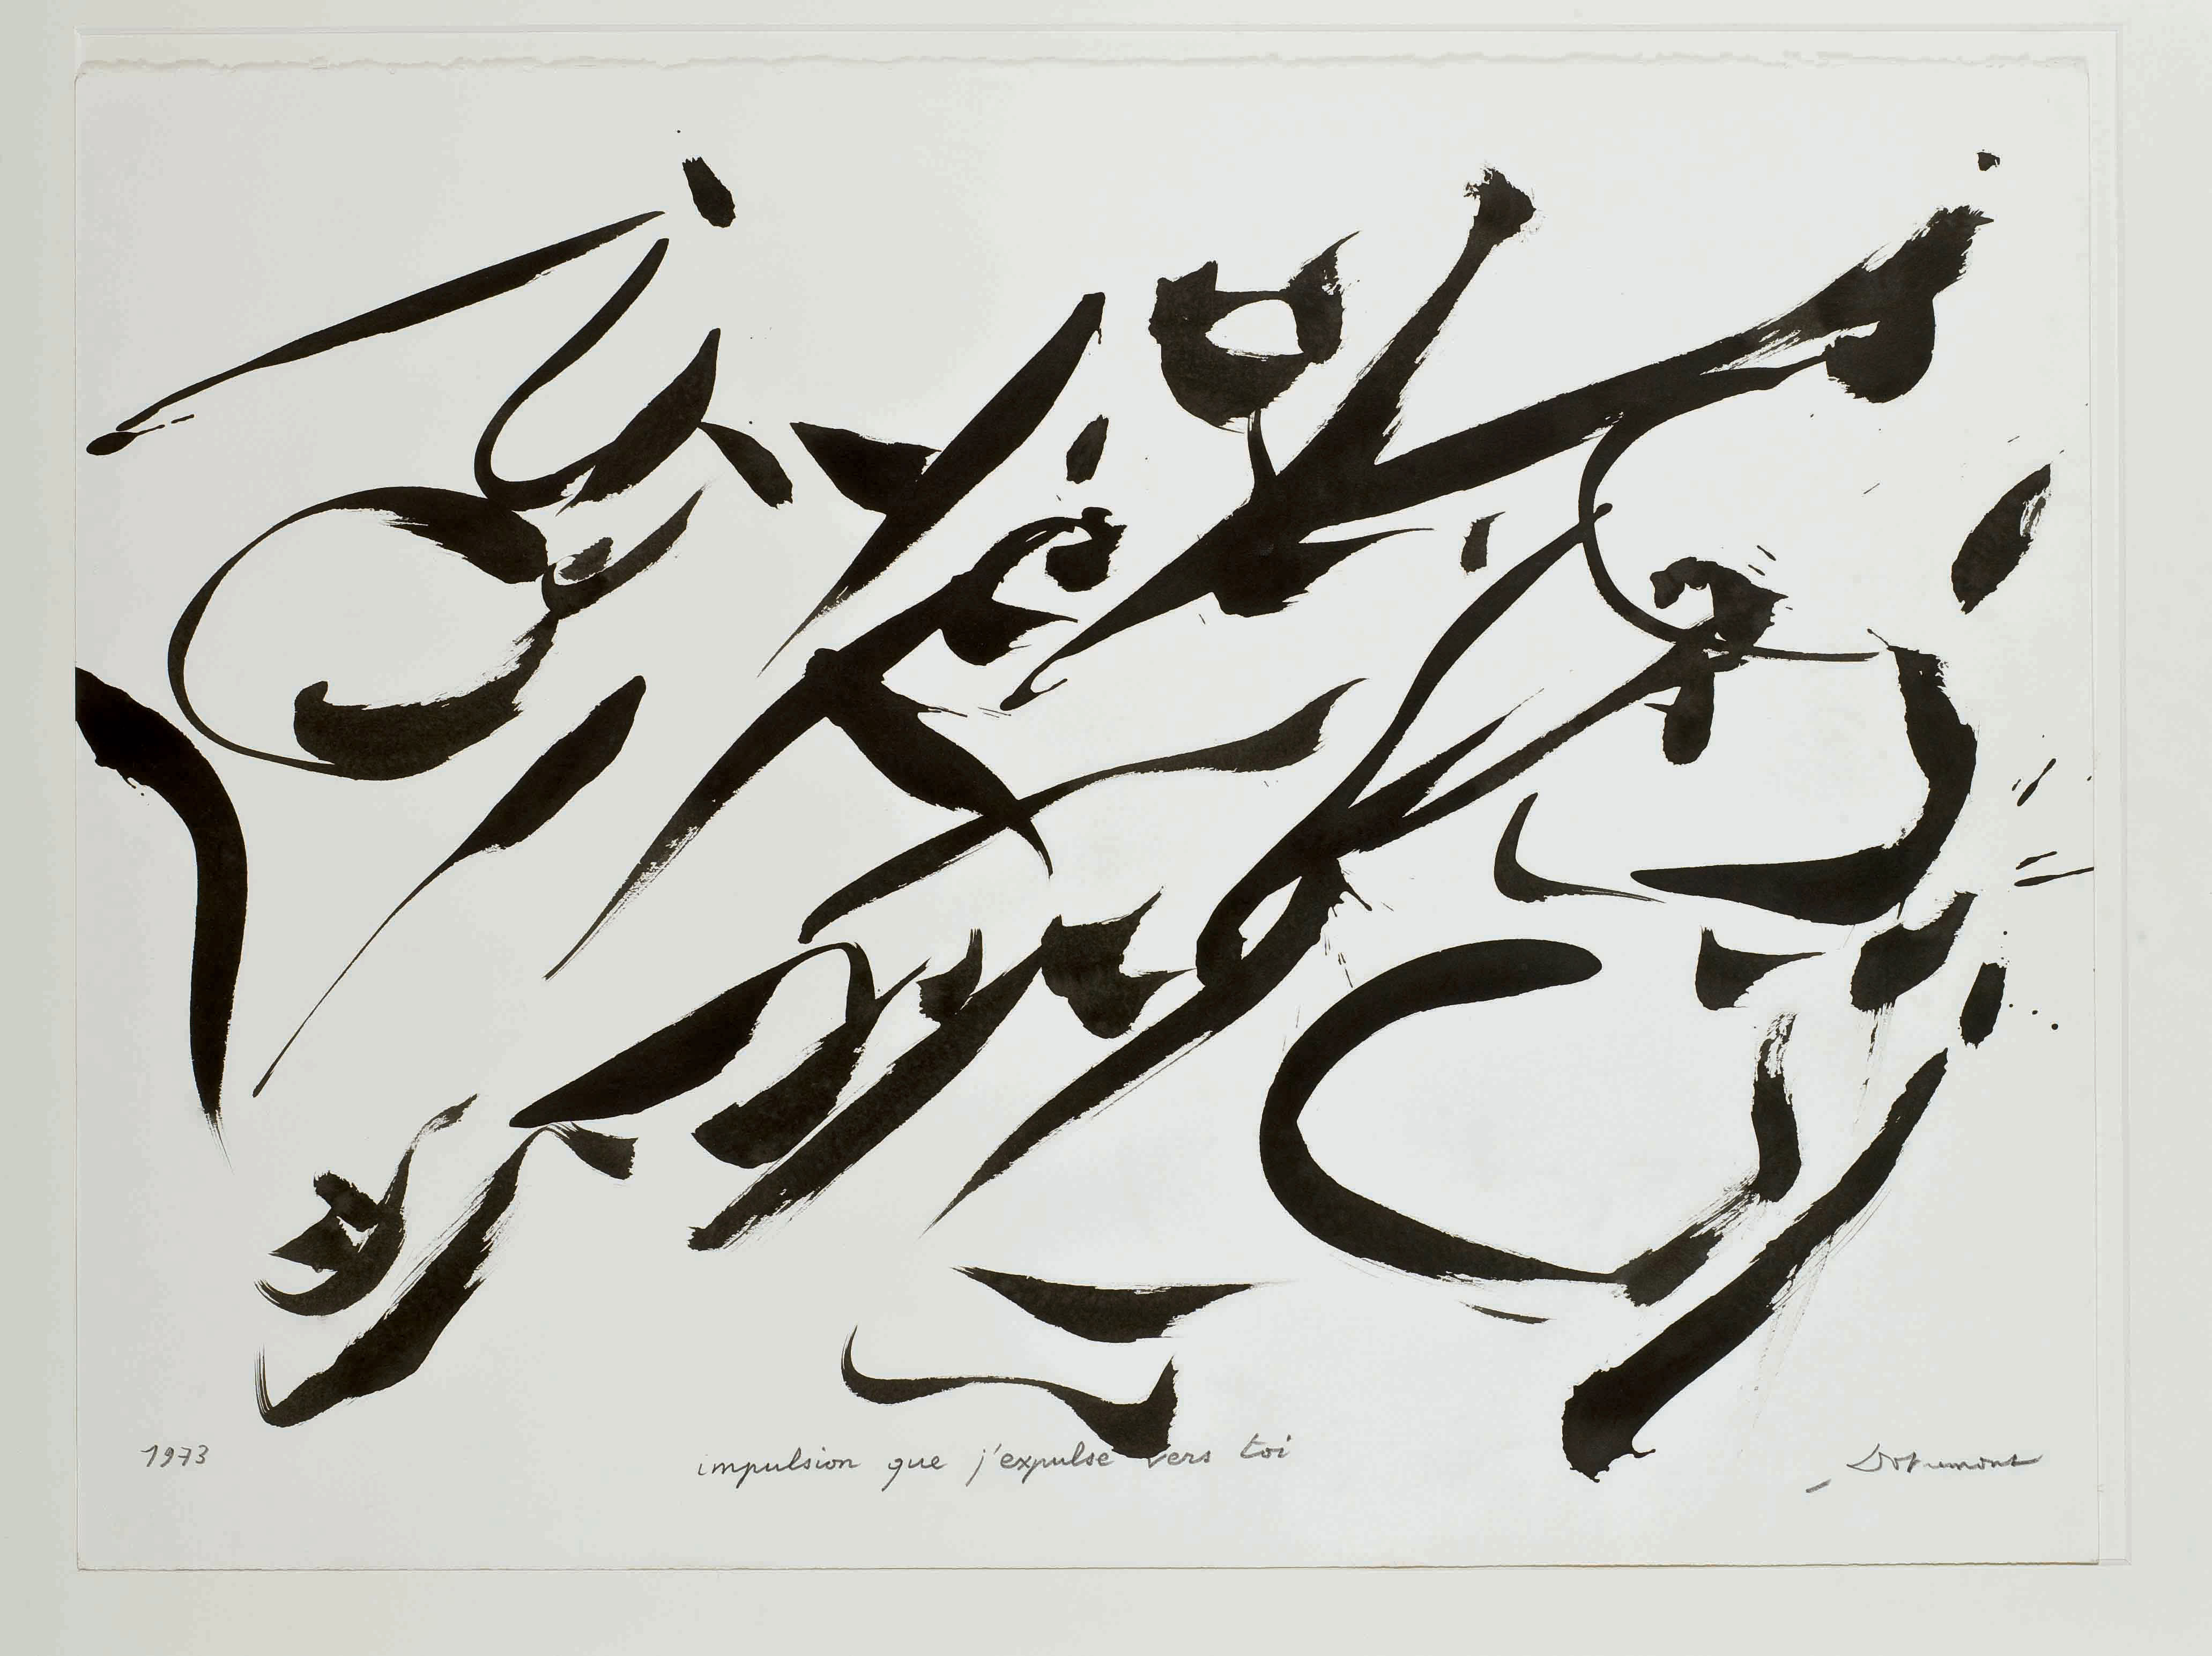 1973 impulsion que j'expulse vers toi Dotremont